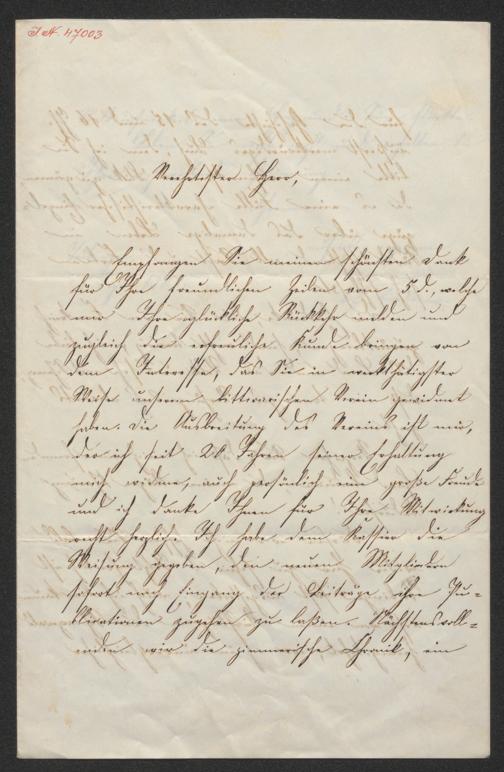 I. N. 47003
Verehrtester Herr,
Empfangen Sie meinen schönsten Dank
für Ihre freundlichen Zeilen vom 5 d., welche
mir Ihre glückliche Rückkehr melden und
zugleich die erfreuliche Kunde bringen von
dem Interesse, das Sie in werkthätigster
Weise unserem litterarischen Verein gewidmet
haben. Die Ausbreitung des Vereins ist mir,
der ich seit 20 Jahren seiner Erhaltung
mich widme, auch persönlich eine große Freude
und ich danke Ihnen für Ihre Mitwirkung
recht herzlich. Ich habe dem Kassier die
Weisung gegeben, den neuen Mitgliedern
sofort nach Eingang der Beiträge ihre Pu-
blicationen zugehen zu laßen. Nächstens voll-
enden wir die zimmerische Chronik, ein